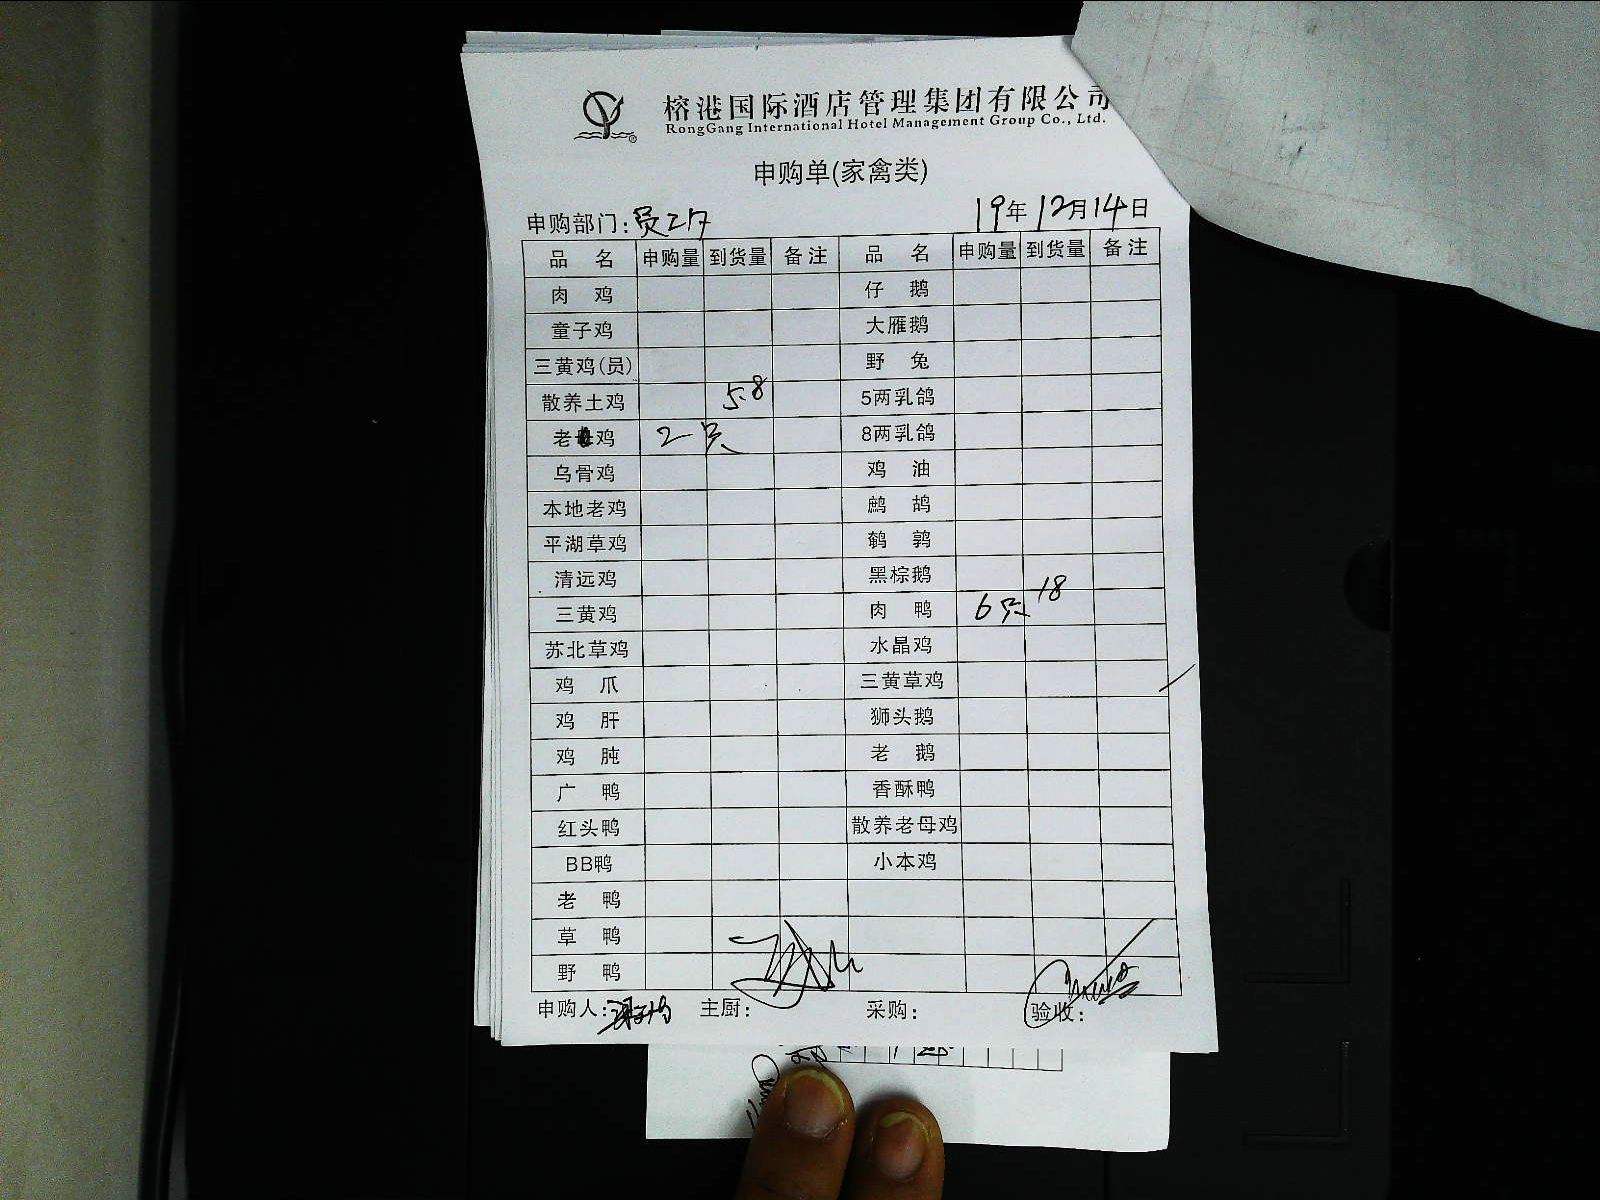 榕港国际酒店管理集团有限公司
RongGang International Hotel Management Group Co., Ltd.
申购单(家禽类)
申购部门: 员工灶 19年12月14日
品 名 申购量 到货量 备注 品 名 申购量 到货量 备注
肉 鸡 仔 鹅
童子鸡 大雁鹅
三黄鸡(员) 野 兔
散养土鸡 5.8 5两乳鸽
老母鸡 2只 8两乳鸽
乌骨鸡 鸡 油
本地老鸡 鹧 鸪
平湖草鸡 鹌 鹑
清远鸡 黑棕鹅
三黄鸡 肉 鸭 6只 18
苏北草鸡 水晶鸡
鸡 爪 三黄草鸡
鸡 肝 狮头鹅
鸡 肫 老 鹅
广 鸭 香酥鸭
红头鸭 散养老母鸡
BB鸭 小本鸡
老 鸭
草 鸭
野 鸭
申购人: 主厨: 采购: 验收: